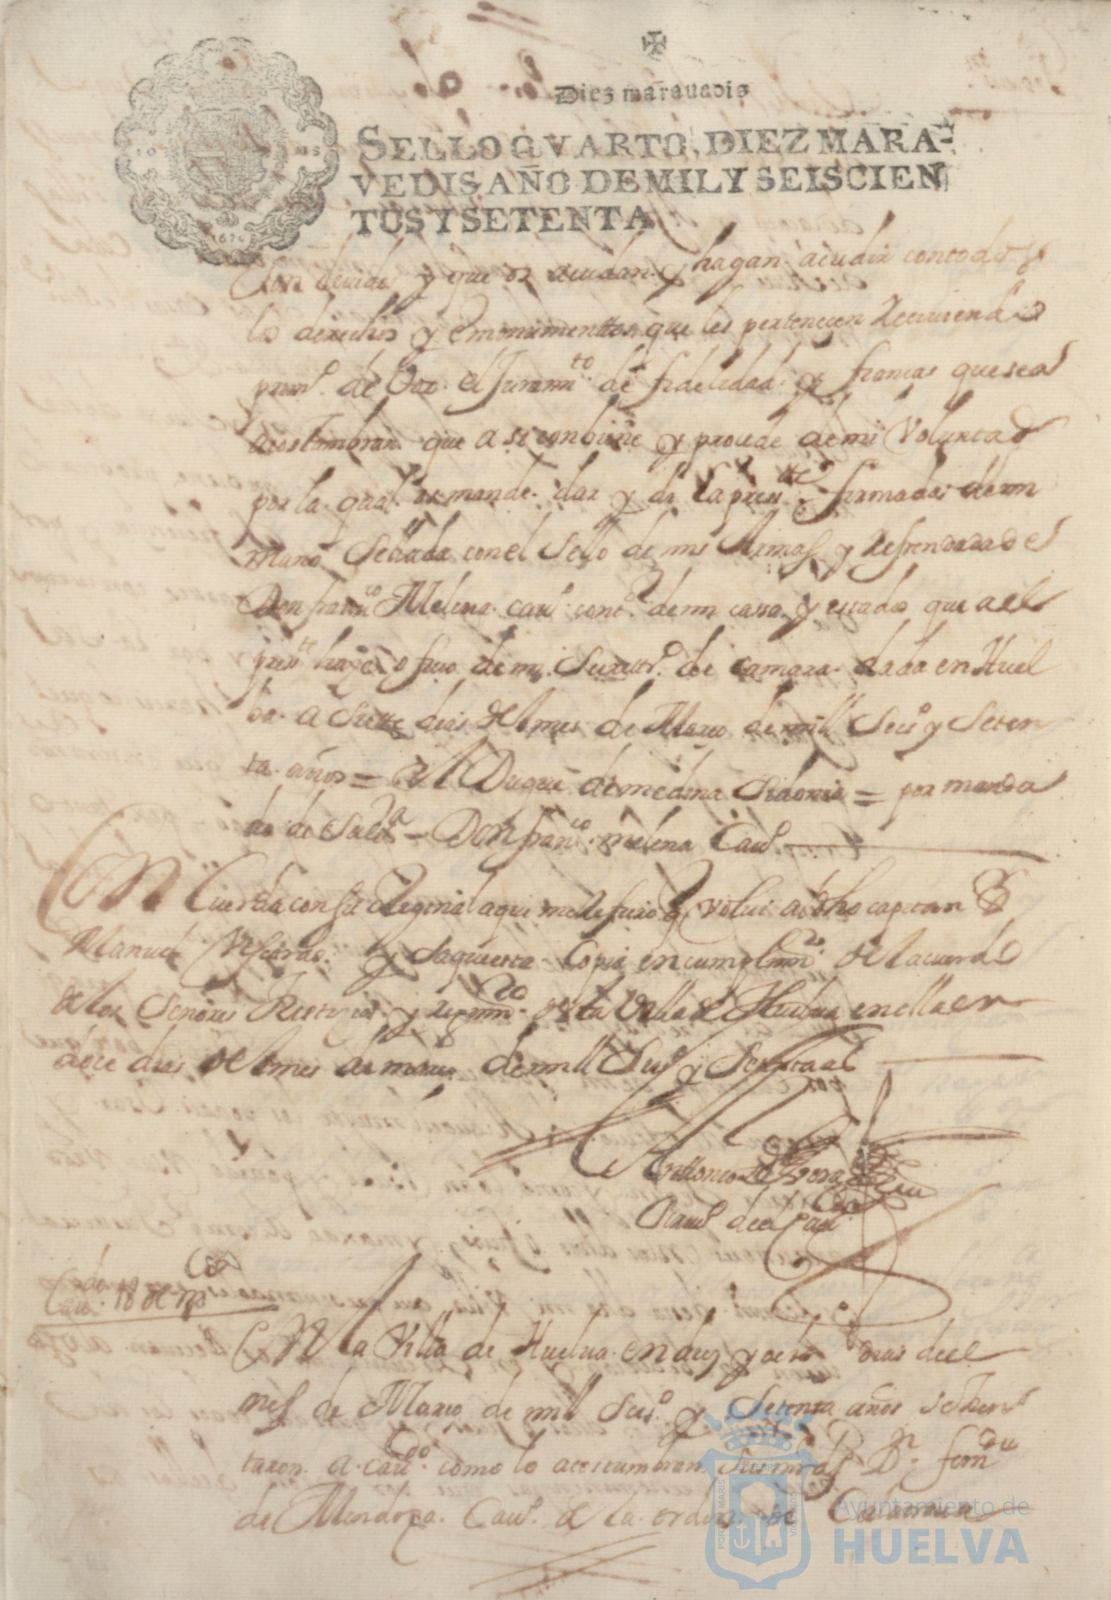 Diez marauedis
SELLO QVARTO, DIEZ MARA-
VEDIS AÑO DE MIL Y SEISCIEN
TOS Y SETENTA
1670
son devidos y que os acudan y hagan acudir con todos
los derechos y emonumenttos que les pertenecen Reciviendo
prim.º de Vos el Juram.to de fidelidad y fianças que se
acostumbran que asi conbiene y procede de mi Voluntad
por la qual os mande dar y di la press.te firmada de mi
mano Sellada con el Sello de mis Armas y Refrendada de
Don fran.co Melena cau.º cont.or de mi cassa y estado que a el
pres.te haze oficio de mi Secrett.º de camara dada en Huel
ba a Siette dias del mes de Março de mill Seis.º y Seten
ta años = El Duque de medina Sidonia = por manda
do de Su ex.ª = Don fran.co melena Cau.º
Concuerda con su original a que me refiero q volui a dho capitan D
Manuel y saque esta Copia en cumplim.to del acuerdo
de los Señores Justicia y regim.to desta Villa de Huelua en ella en
doce dias del mes de março de mill Seis.º y Setenta as
Cau.do 18 de m.ço
En la Villa de Huelua en diez y ocho dias del
mes de Março de mill Seis.º y Setenta años se Jun
taron a cau.do como lo acostumbran Su mrd D.n fern.do
de Mendoza Cau.º de la orden de Calatrava
Ayuntamiento de
HUELVA